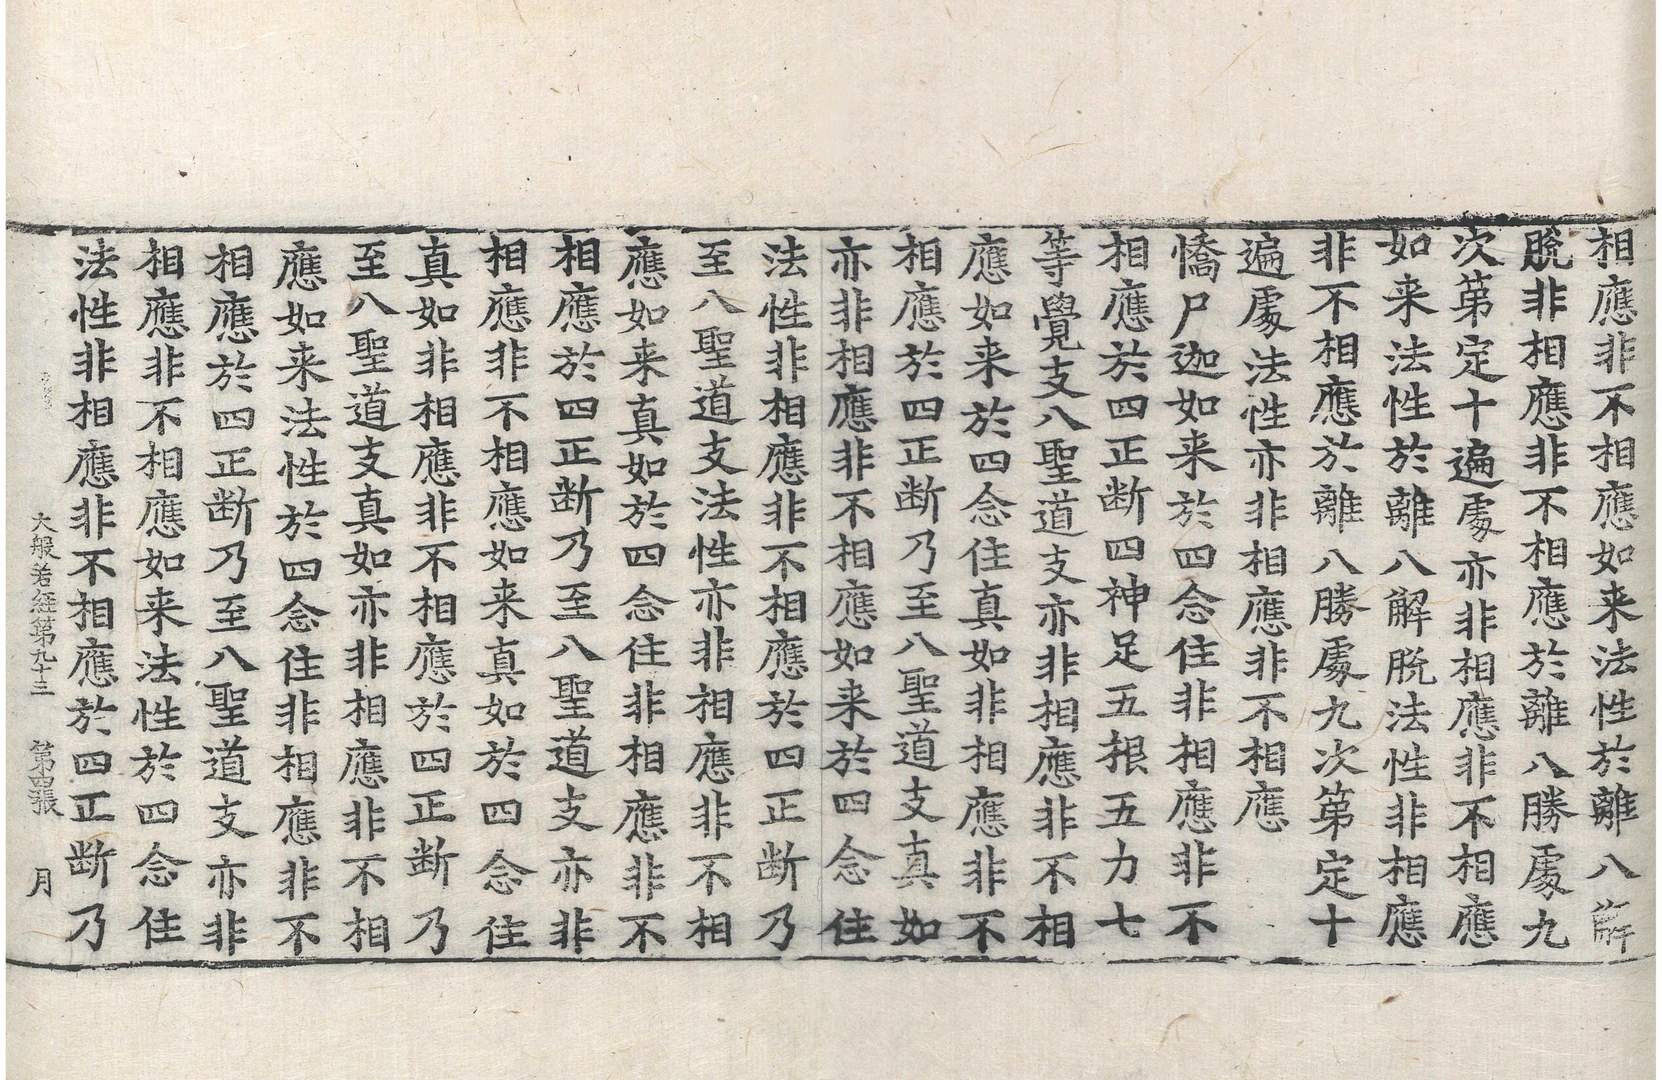 相應非不相應如来法性於離八解
脫非相應非不相應於離八勝處九
次第定十遍處亦非相應非不相應
如来法性於離八解脫法性非相應
非不相應於離八勝處九次第定十
遍處法性亦非相應非不相應
憍尸迦如来於四念住非相應非不
相應於四正断四神足五根五力七
等覺支八聖道支亦非相應非不相
應如来於四念住真如非相應非不
相應於四正断乃至八聖道支真如
亦非相應非不相應如来於四念住
法性非相應非不相應於四正断乃
至八聖道支法性亦非相應非不相
應如来真如於四念住非相應非不
相應於四正断乃至八聖道支亦非
相應非不相應如来真如於四念住
真如非相應非不相應於四正断乃
至八聖道支真如亦非相應非不相
應如来法性於四念住非相應非不
相應於四正断乃至八聖道支亦非
相應非不相應如来法性於四念住
法性非相應非不相應於四正断乃
大般若経第九十三 第四張 月